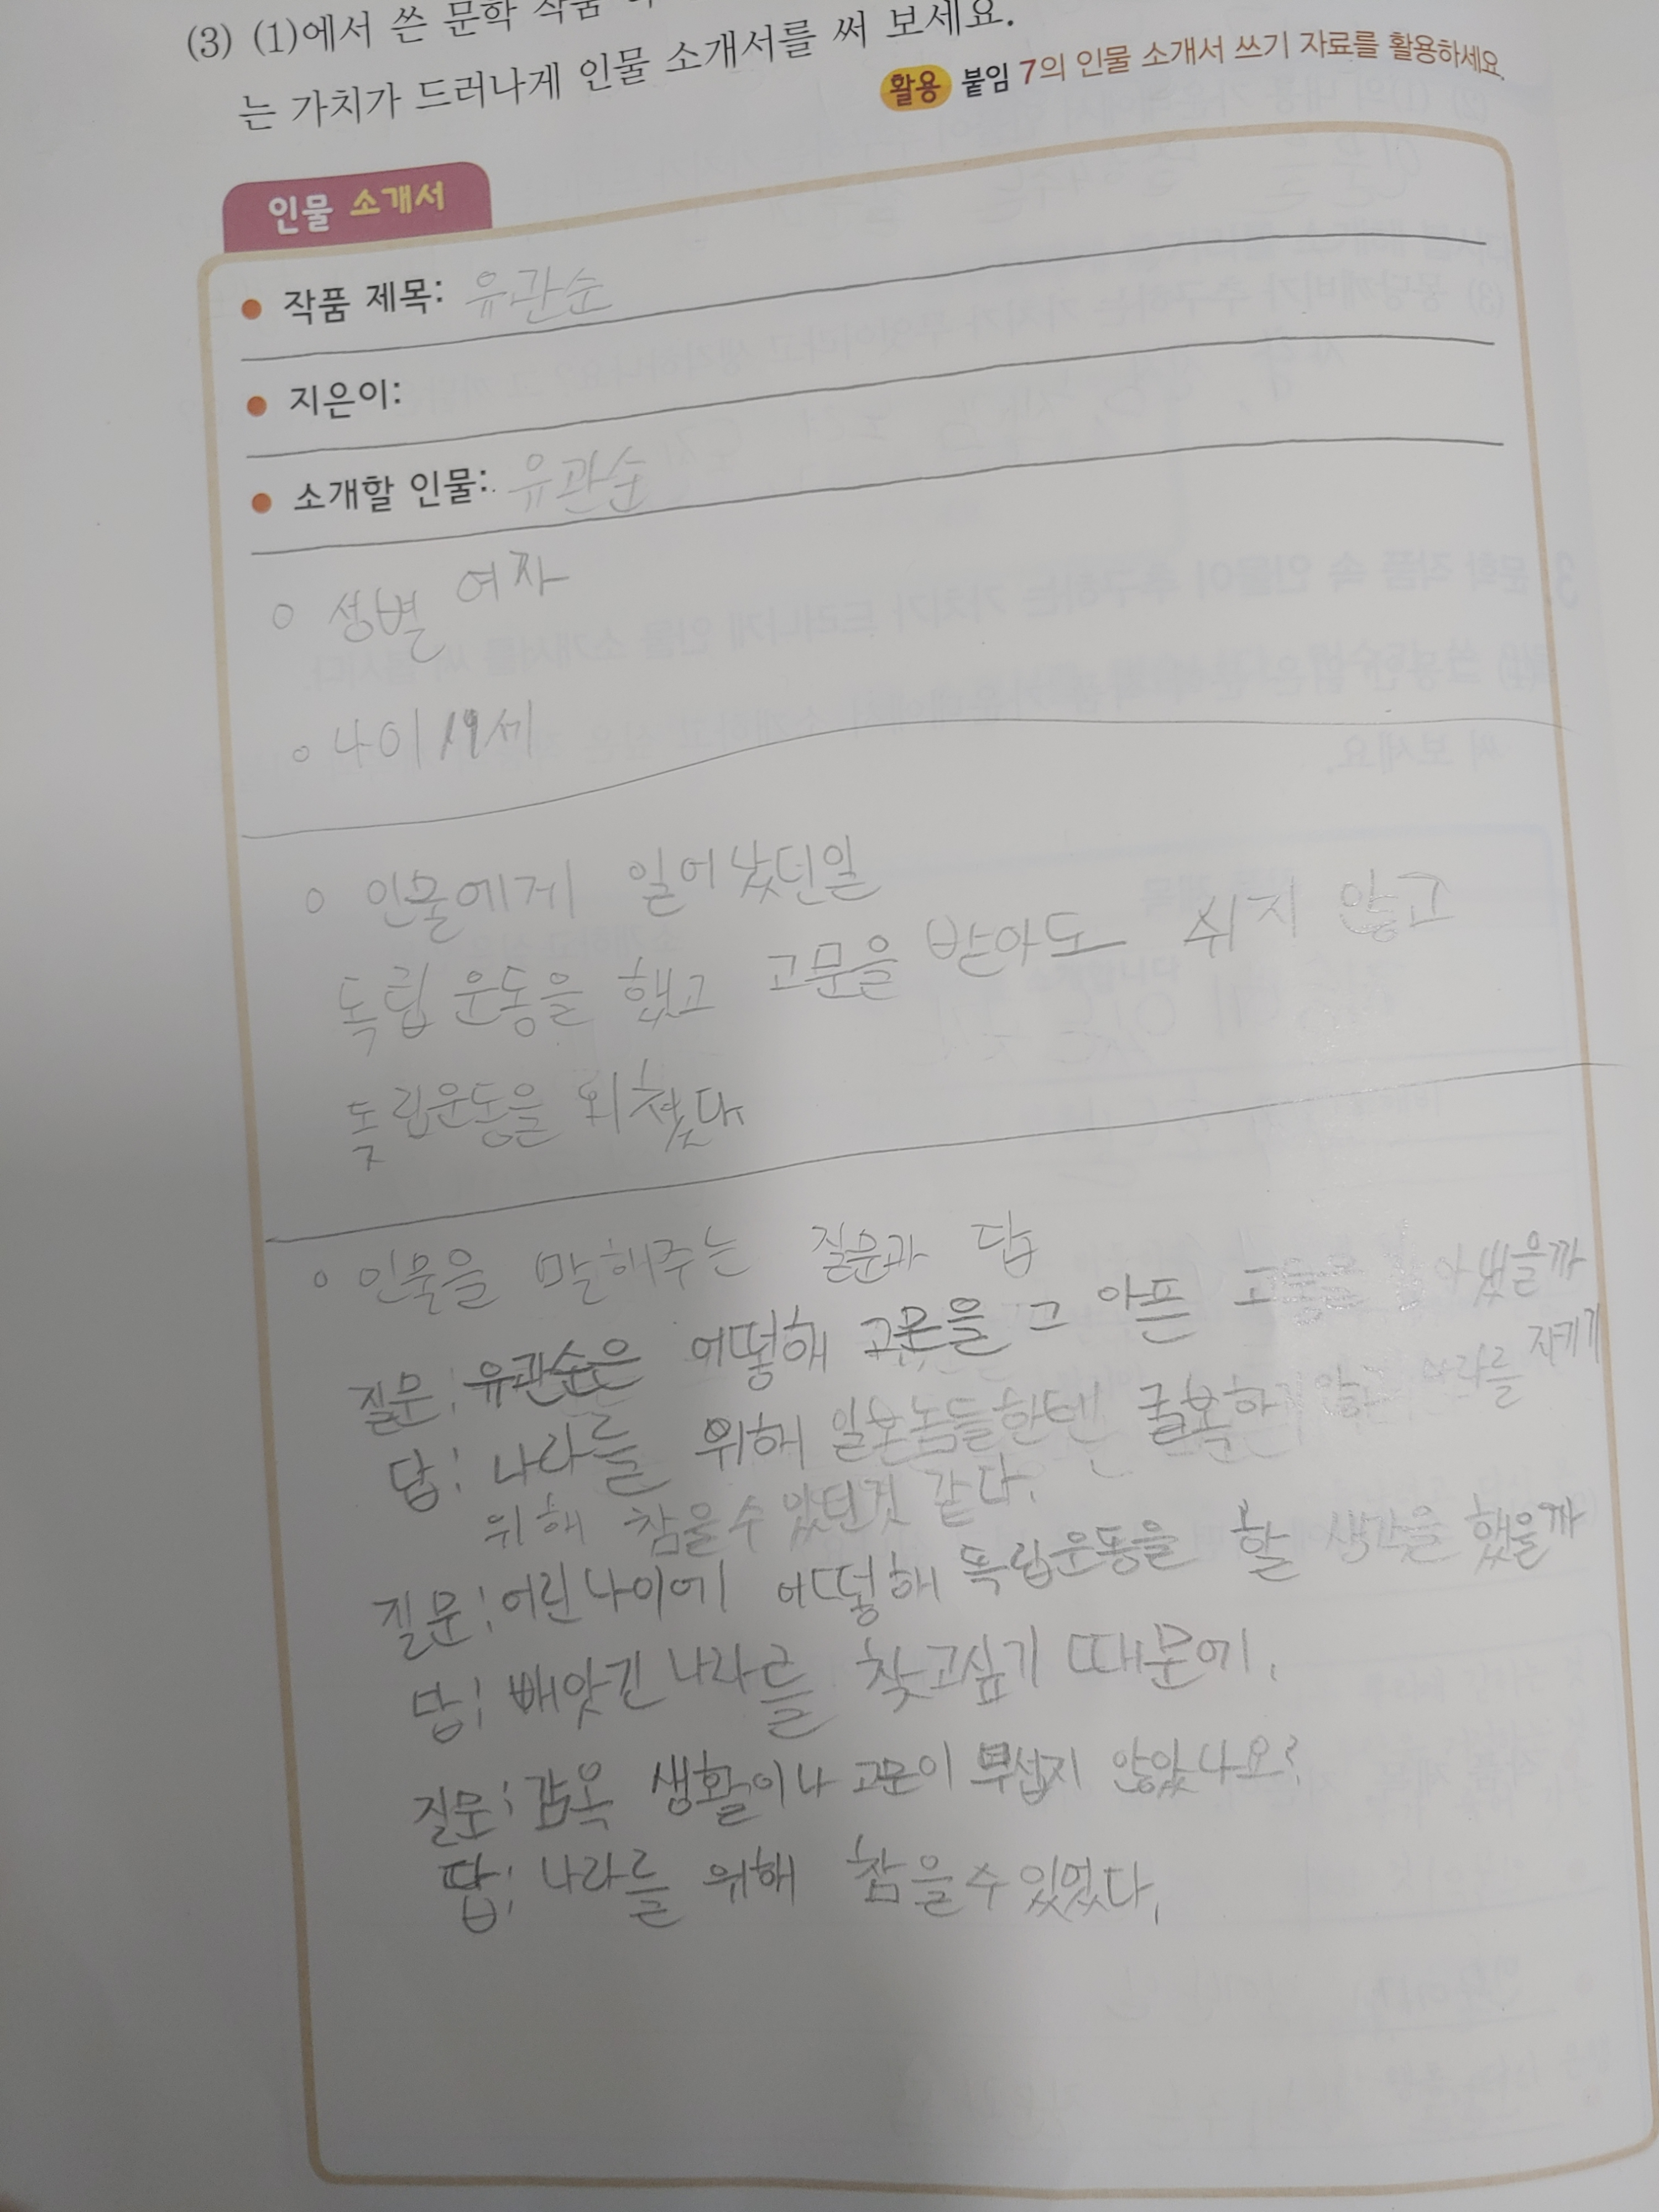 (3) (1)에서 쓴 문학 작품
는 가치가 드러나게 인물 소개서를 써 보세요.
활용 붙임 7의 인물 소개서 쓰기 자료를 활용하세요.
인물 소개서
작품 제목: 유관순
지은이:
소개할 인물: 유관순
○ 성별 여자
○ 나이 19세
○ 인물에게 일어났던일
독립 운동을 했고 고문을 받아도 쉬지 않고
독립운동을 외쳤다
○ 인물을 말해주는 질문과 답
질문: 유관순은 어떻해 고문을 그 아픈
답: 나라를 위해 일본놈들한텐 굴복하지 않고 나라를 지키기
위해 참을수 있었던것 같다.
질문: 어린나이에 어떻해 독립운동을 할 생각을 했을까
답: 빼앗긴 나라를 찾고싶기 때문에.
질문: 감옥 생활이나 고문이 무섭지 않았나요?
답: 나라를 위해 참을수 있었다.